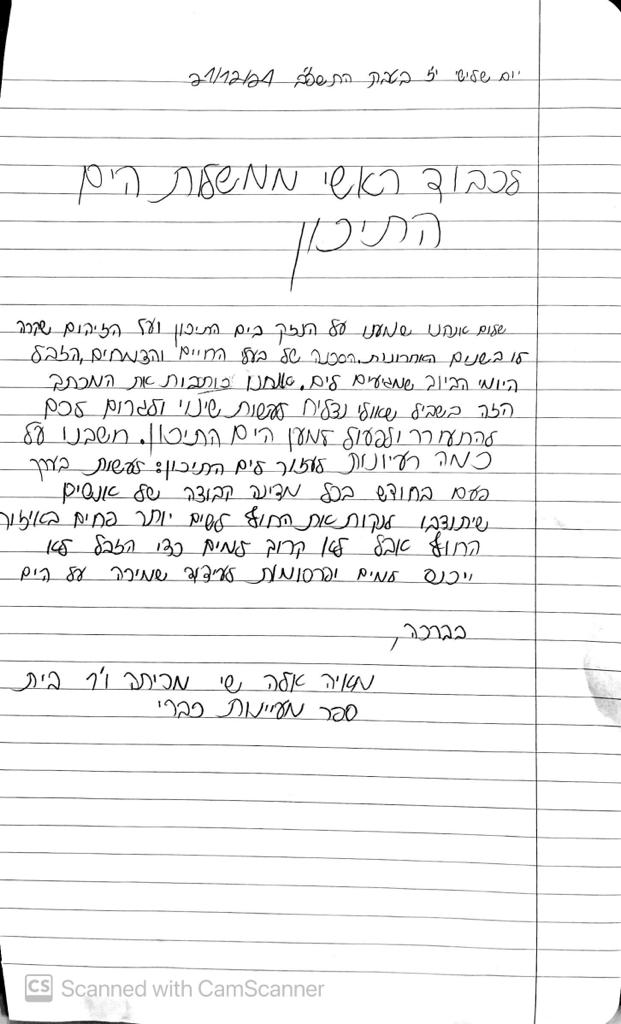 יום שלישי י"ז בטבת התשפ"ב 21/12/21
לכבוד ראשי ממשלות הים
התיכון
שלום אנחנו שמענו על הנזק בים התיכון ועל הזיהום שקרה
לו בשנים האחרונות. הסכנה של בעלי החיים והצמחים, הזבל
היומי הביוב שמגיעים לים. אנחנו כותבות את המכתב
הזה בשביל שאולי נצליח לעשות שינוי ולגרום לכם
להתעורר ולפעול למען הים התיכון. חשבנו על
כמה רעיונות לעזור לים התיכון: לעשות בערך
פעם בחודש בכל מדינה קבוצה של אנשים
שיתנדבו לנקות את החוף לשים יותר פחים באיזור
החוף אבל לא קרוב למים כדי הזבל לא
ייכנס למים ופרסומות לעידוד שמירה על הים
בברכה,
מאיה אלה שי מכיתה ו'1 בית
ספר מעיינות כברי
CS Scanned with CamScanner